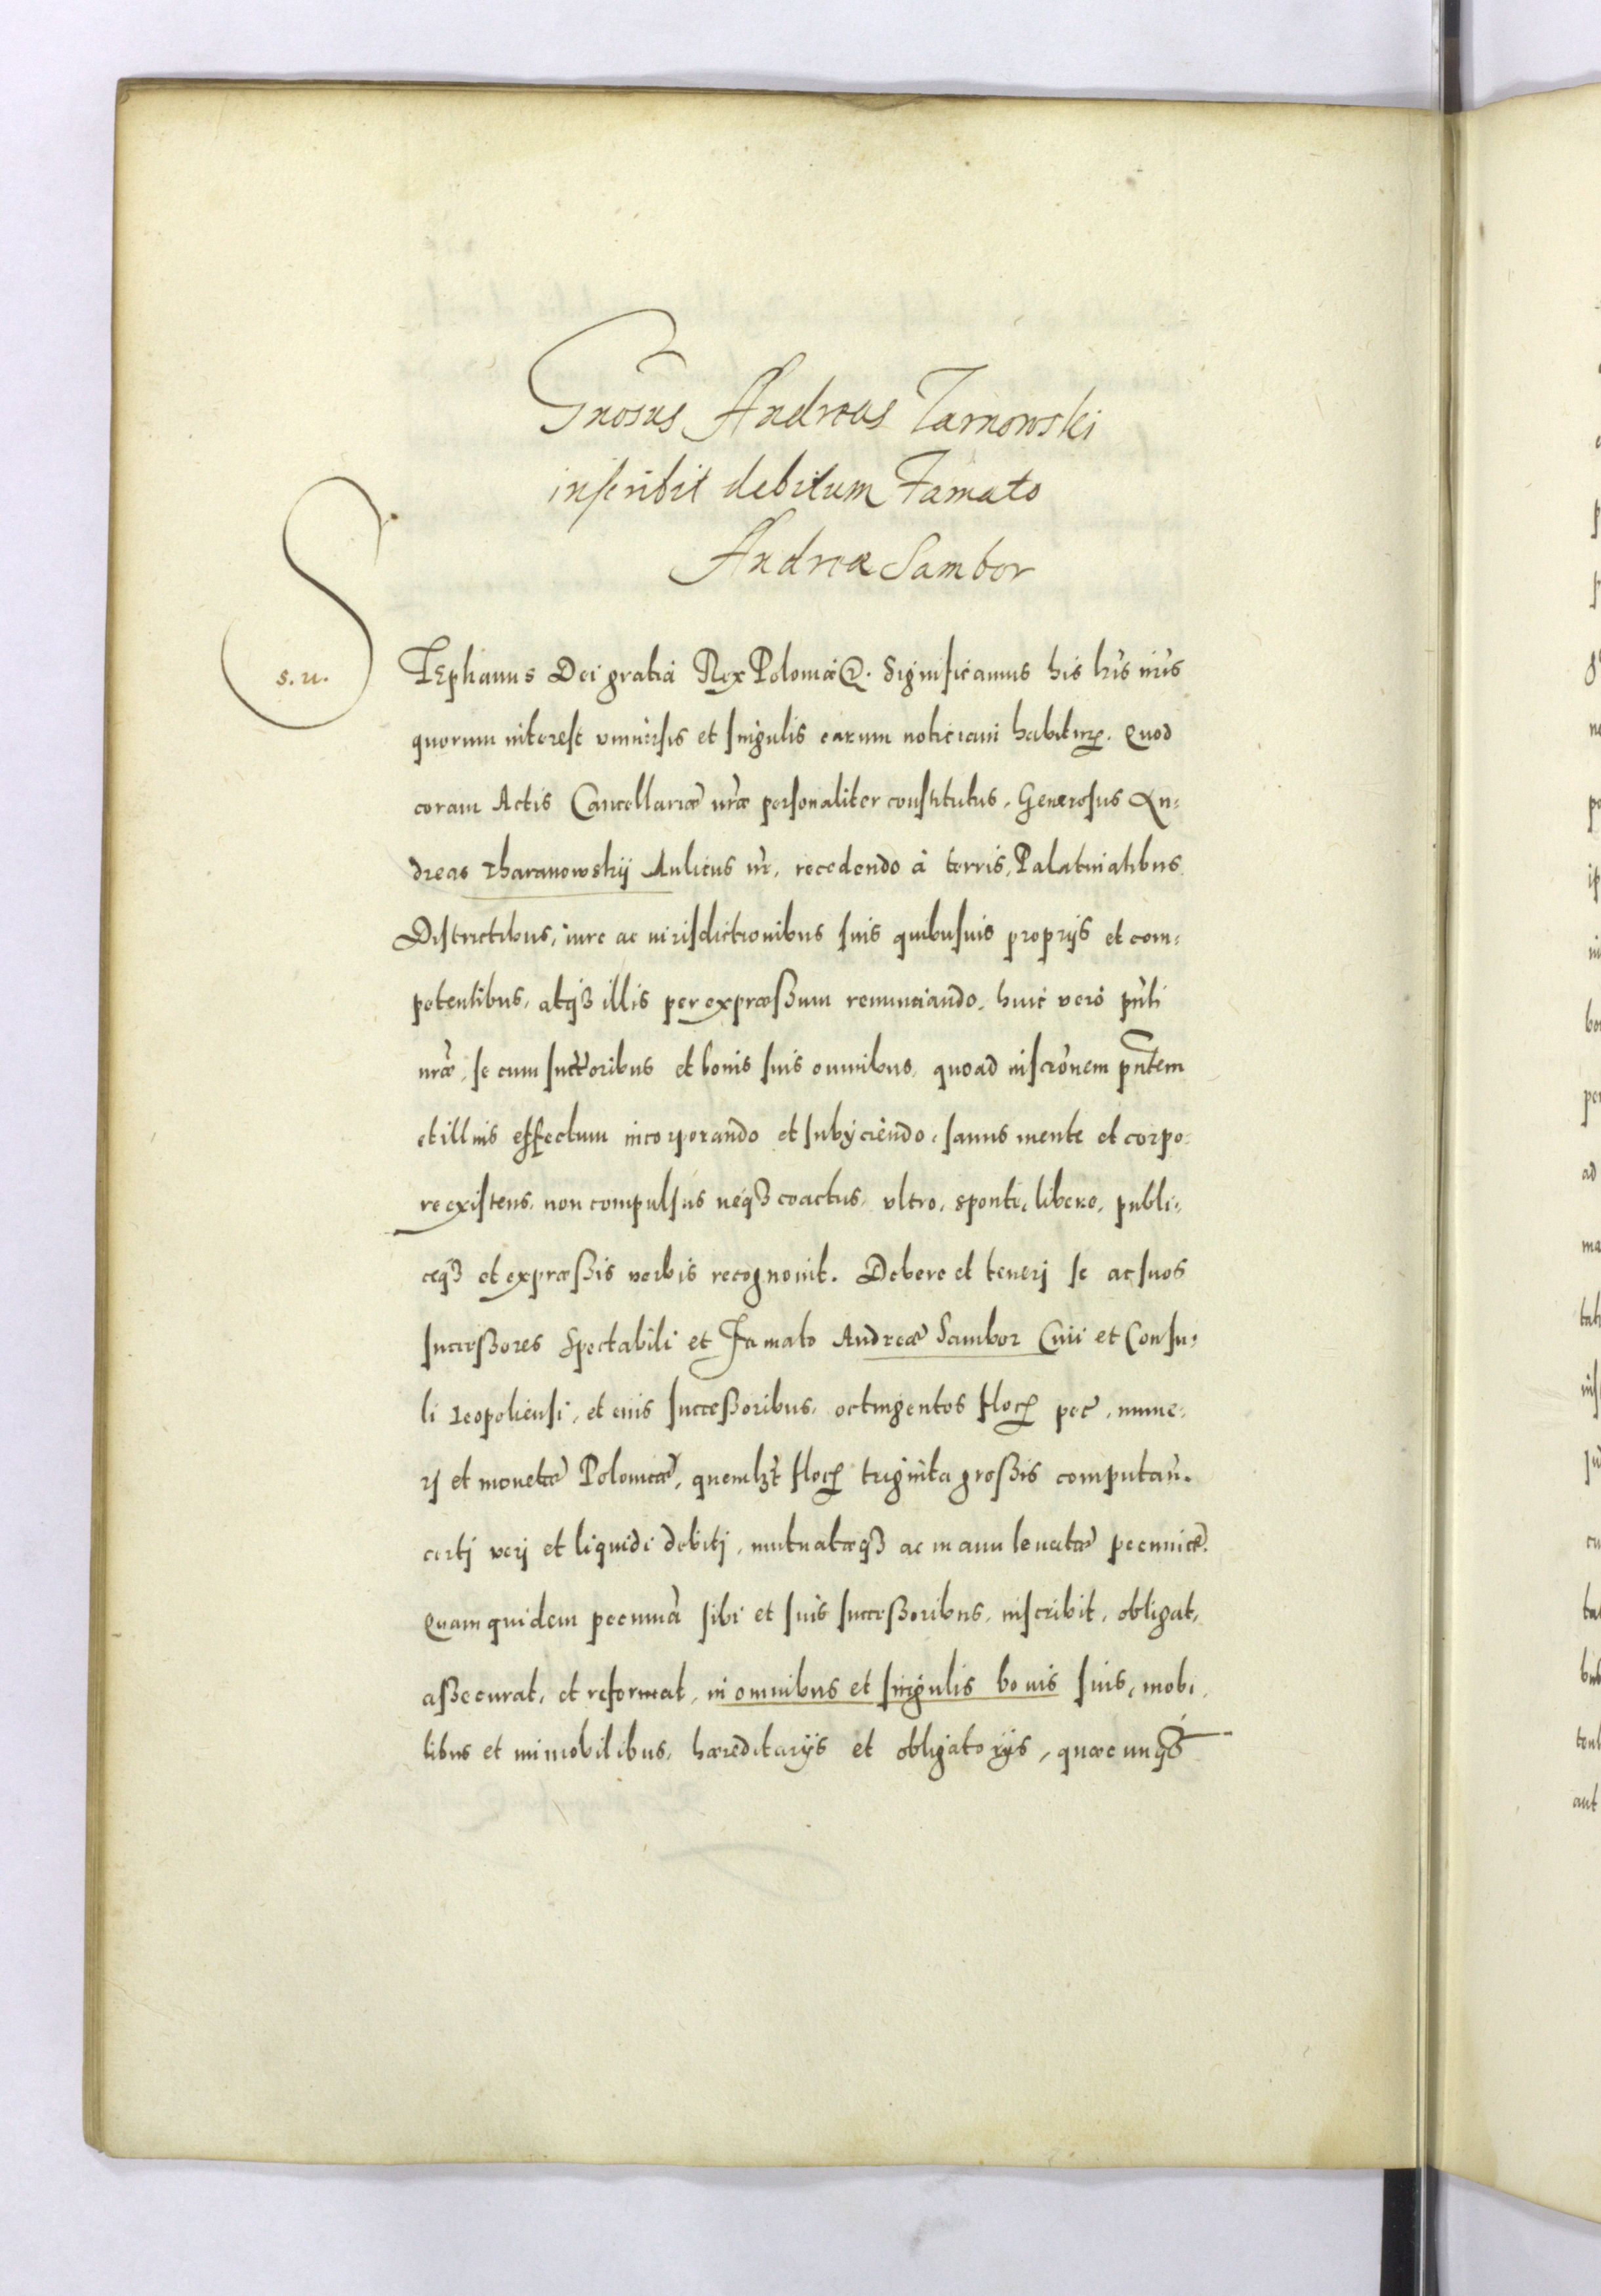 Gnosus Andreas Tarnowski
inscribit debitum Famato
Andreæ Sambor
s. u.
STEphanus Dei gratia Rex Poloniæ &. Significamus his lris nris
quorum interest vniuersis et singulis earum noticiam habiturꝝ. Quod
coram Actis Cancellariæ nræ personaliter constitutus, Generosus An=
dreas Tharanowskij Aulicus nr, recedendo à terris, Palatinatibus
Districtibus, iure ac iurisdictionibus suis quibusuis proprijs et com=
petentibus, atqꝫ illis per expræßum renunciando, huic vero pnti
nræ, se cum succoribus et bonis suis omnibus, quoad inscronem pntem
et illius effectum incorporando et subijciendo, sanus mente et corpo=
re existens, non compulsus neqꝫ coactus, vltro, sponte, libere, publi=
ceqꝫ et expræßis verbis recognouit. Debere et tenerj se ac suos
succeßores Spectabili et Famato Andreæ Sambor Ciui et Consu=
li Leopoliensi, et eius succeßoribus, octingentos flocꝝ pec, nume=
rj et monetæ Polonicæ, quemlꝫt flocꝝ triginta großis computan.
certj verj et liquidi debitj, mutuatæqꝫ ac manu leuatæ pecuniæ.
Quam quidem pecuniã sibi et suis succeßoribus, inscribit, obligat,
aßecurat, et reformat, in omnibus et singulis bonis suis, mobi=
libus et immobilibus, hæreditarijs et obligatorijs, quæcunqꝫ